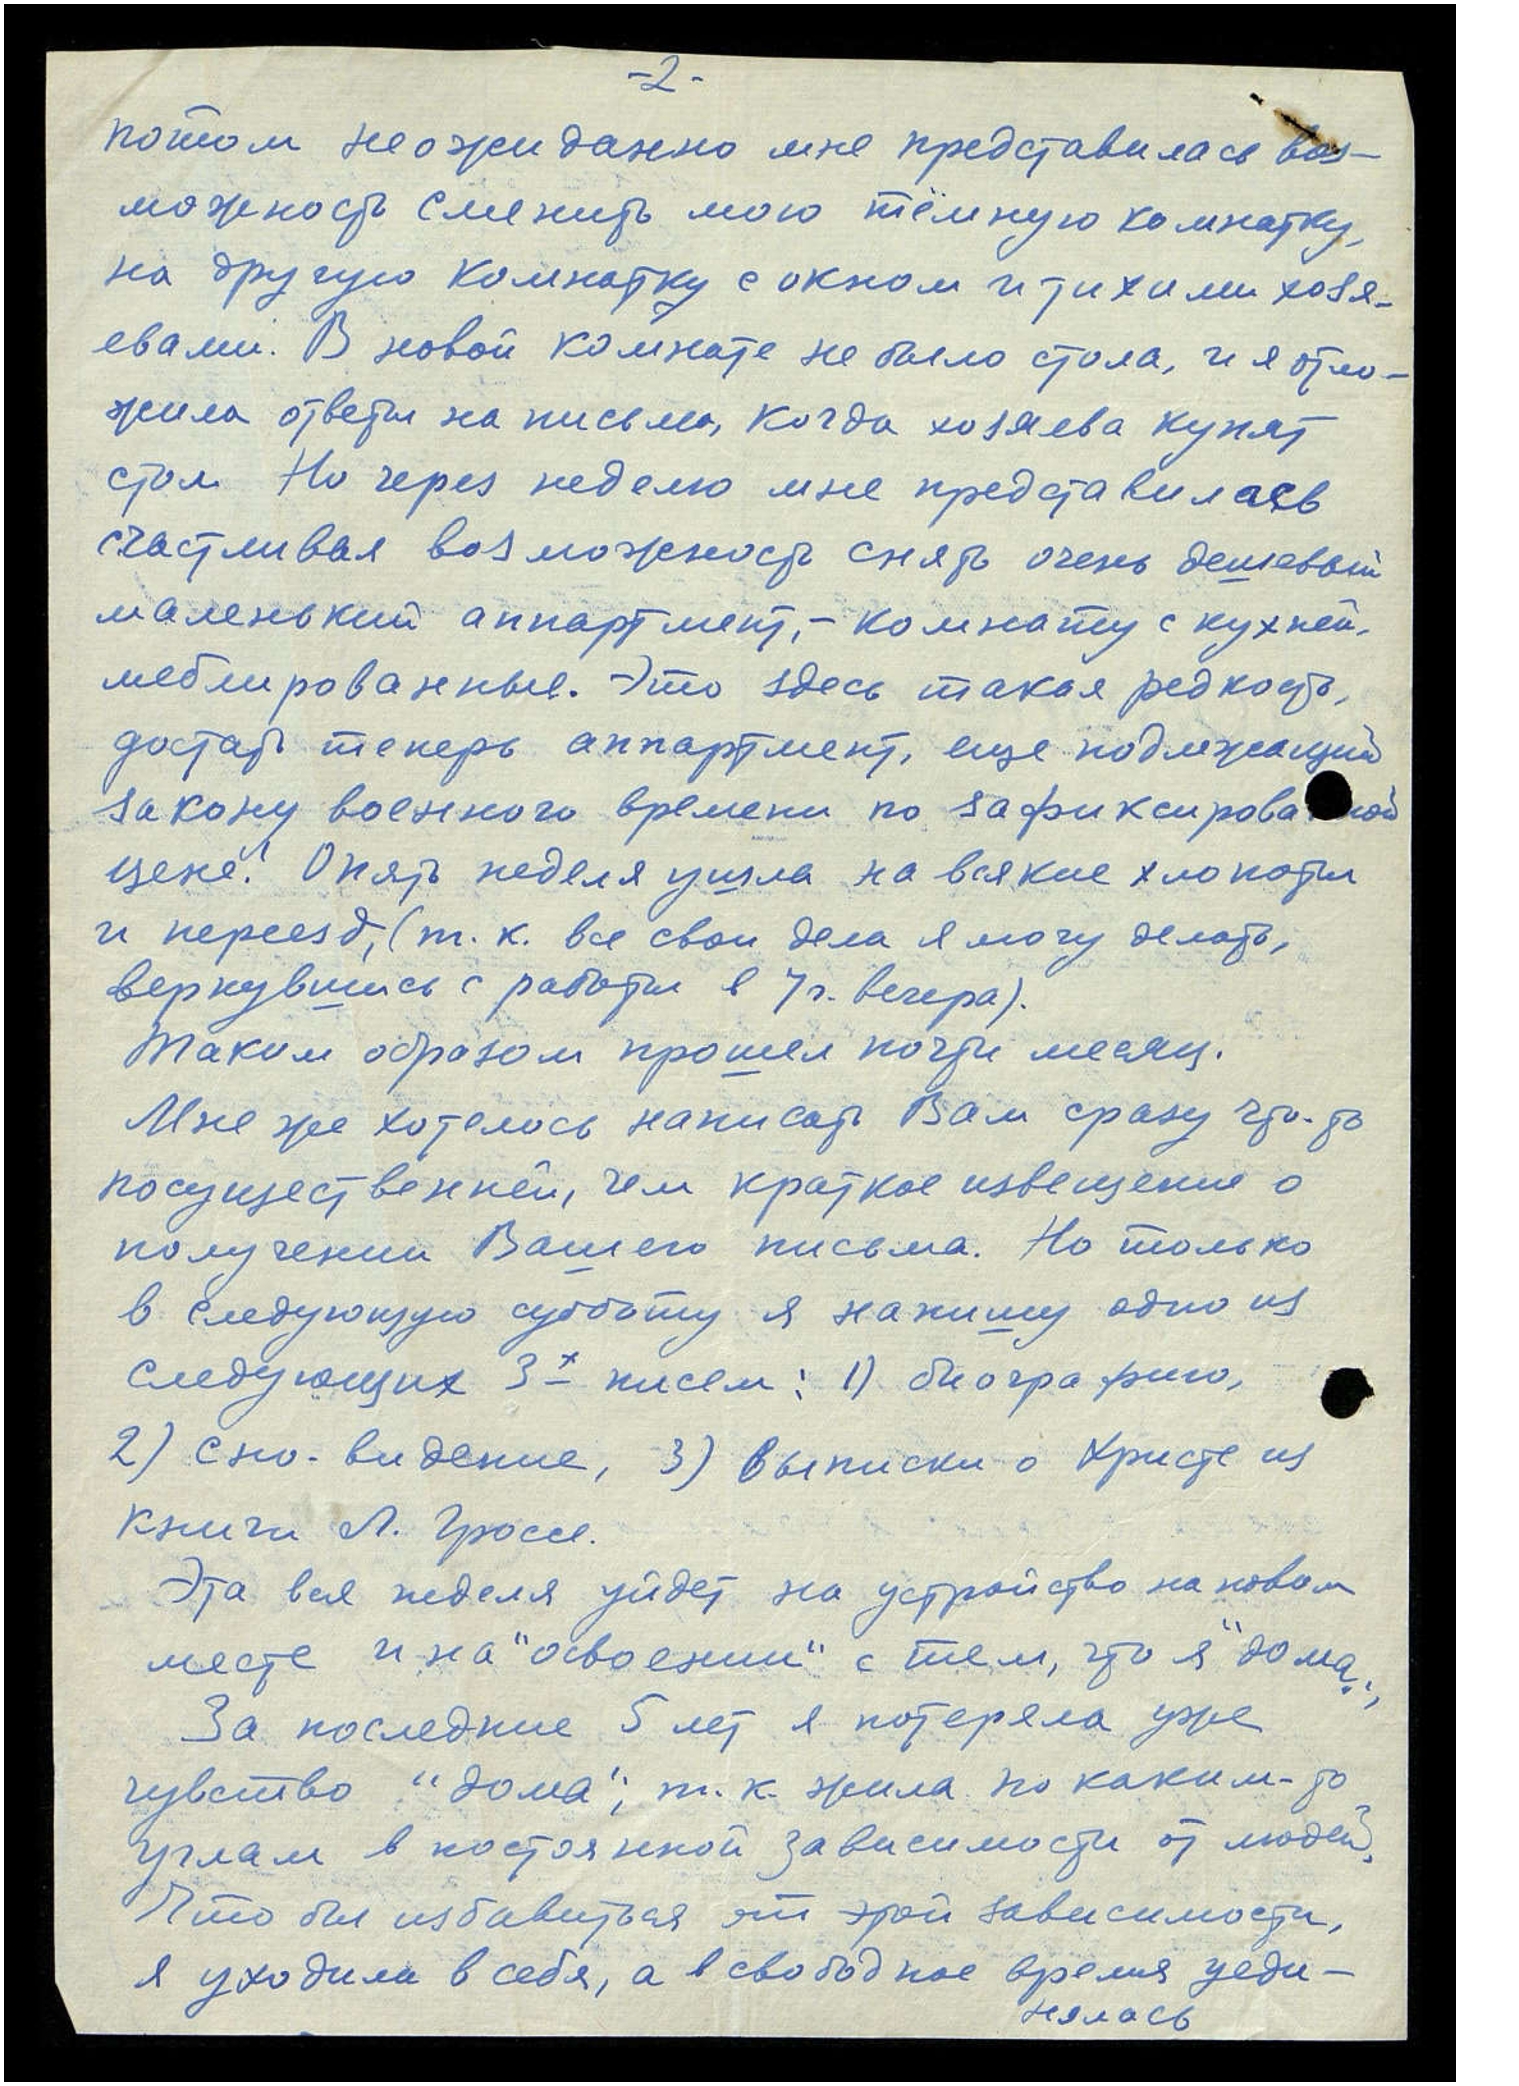 -2-
потом неожиданно мне представилась воз-
можность сменить мою тёмную комнатку,
на другую комнатку с окном и тихими хозя-
евами. В новой комнате не было стола, и я отло-
жила ответы на письма, когда хозяева купят
стол. Но через неделю мне представилась
счастливая возможность снять очень дешевый
маленький аппартмент, - комнату с кухней,
меблированные. Это здесь такая редкость,
достать теперь аппартмент, еще подлежащий
закону военного времени по зафиксированной
цене! Опять неделя ушла на всякие хлопоты
и переезд, (т. к. все свои дела я могу делать,
вернувшись с работы в 7 ч. вечера).
Таким образом прошел почти месяц.
Мне же хотелось написать Вам сразу что-то
посущественней, чем краткое извещение о
получении Вашего письма. Но только
в следующую субботу я напишу одно из
следующих 3х писем: 1) биографию,
2) сно-видение, 3) выписки о Христе из
книги Л. Гроссе.
Эта вся неделя уйдет на устройство на новом
месте и на "освоении" с тем, что я "дома".
За последние 5 лет я потеряла уже
чувство "дома", т. к. жила по каким-то
углам в постоянной зависимости от людей.
Что бы избавиться от этой зависимости,
я уходила в себя, а в свободное время уеди-
нялась